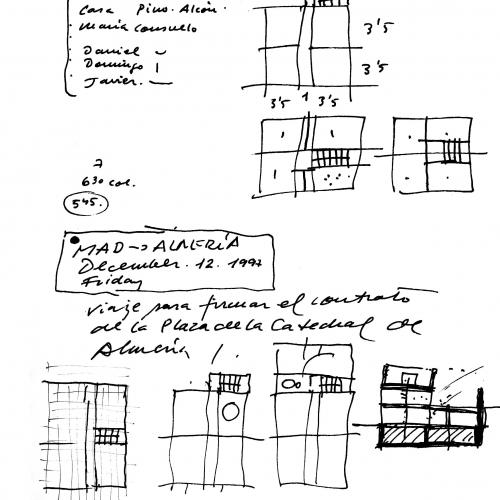 Casa Pino. Alcón.
María Consuelo
Daniel
Domingo
Javier. —
3'5
3'5
3'5 1 3'5
7
630 col.
545.
MAD → ALMERÍA
December. 12. 1997
Friday
Viaje para firmar el contrato
de la Plaza de la Catedral de
Almería